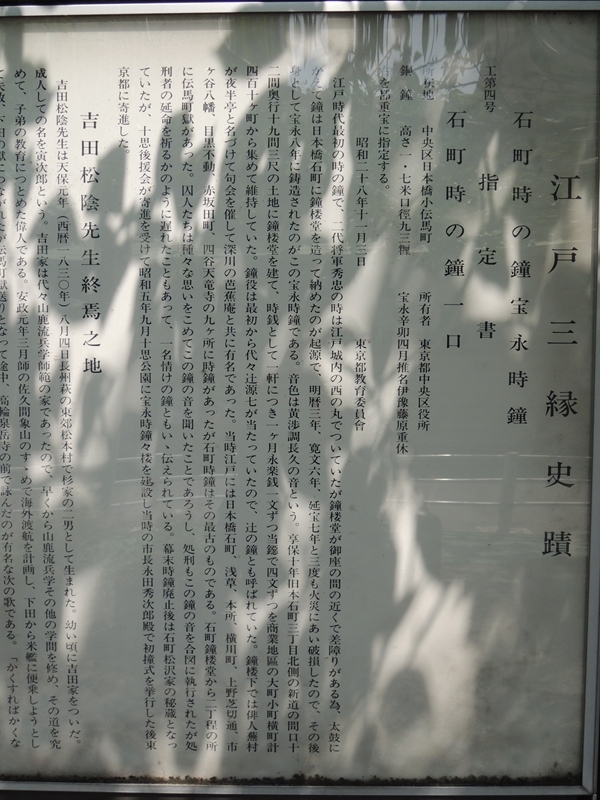 江戸三縁史蹟
石町時の鐘宝永時鐘
指定書
工第四号
石町時の鐘一口
中央区日本橋小伝馬町 所有者 東京都中央区役所
銅鐘 高さ一・七米口徑九三糎 宝永辛卯四月推名伊豫藤原重休
を都重宝に指定する。
昭和二十八年十一月三日
東京都教育委員会
江戸時代最初の時の鐘で、二代将軍秀忠の時は江戸城内の西の丸でついていたが鐘楼堂が御座の間の近くで差障りがある為、太鼓に
かへて鐘は日本橋石町に鐘楼堂を造って納めたのが起源で、明暦三年、寛文六年、延宝七年と三度も火災にあい破損したので、その後
身として宝永八年に鋳造されたのがこの宝永時鐘である。音色は黄渉調長久の音という。享保十年旧本石町三丁目北側の新道の間口十
二間奥行十九間三尺の土地に鐘楼堂を建て、時銭として一軒につき一ヶ月永楽銭一文ずつ当鐚で四文ずつを商業地區の大町小町横町計
四百十ヶ町から集めて維持していた。鐘役は最初から代々辻源七が当たっていたので、辻の鐘とも呼ばれていた。鐘楼下では俳人蕪村
が夜半亭と名づけて句会を催して深川の芭蕉庵と共に有名であった。当時江戸には日本橋石町、浅草、本所、横川町、上野芝切通、市
ヶ谷八幡、目黒不動、赤坂田町、四谷天竜寺の九ヶ所に時鐘があったが石町時鐘はその最古のものである。石町鐘楼堂から二丁程の所
に伝馬町獄があった。囚人たちは種々な思いをこめてこの鐘の音を聞いたことであろうし、処刑もこの鐘の音を合図に執行されたが処
刑者の延命を祈るかのように遅れたこともあって、一名情けの鐘ともいい伝えられている。幕末時鐘廃止後は石町松沢家の秘蔵となっ
ていたが、十思後援会が寄進を受けて昭和五年九月十思公園に宝永時鐘々楼を建設し当時の市長永田秀次郎殿で初撞式を挙行した後東
京都に寄進した。
吉田松陰先生終焉之地
吉田松陰先生は天保元年(西暦一八三〇年)八月四日長州萩の東郊松本村で杉家の二男として生まれた。幼い頃に吉田家をついだ。
成人しての名を寅次郎という。吉田家は代々山鹿流兵学師範の家であったので、早くから山鹿流兵学その他の学問を修め、その道を究
めて、子弟の教育につとめた偉人である。安政元年三月師の佐久間象山のすゝめで海外渡航を計画し、下田から米艦に便乗しようとし
て失敗、下田の獄につながれたが伝馬町獄送りとなって途中、高輪泉岳寺の前で詠んだのが有名な次の歌である。「かくすればかくな